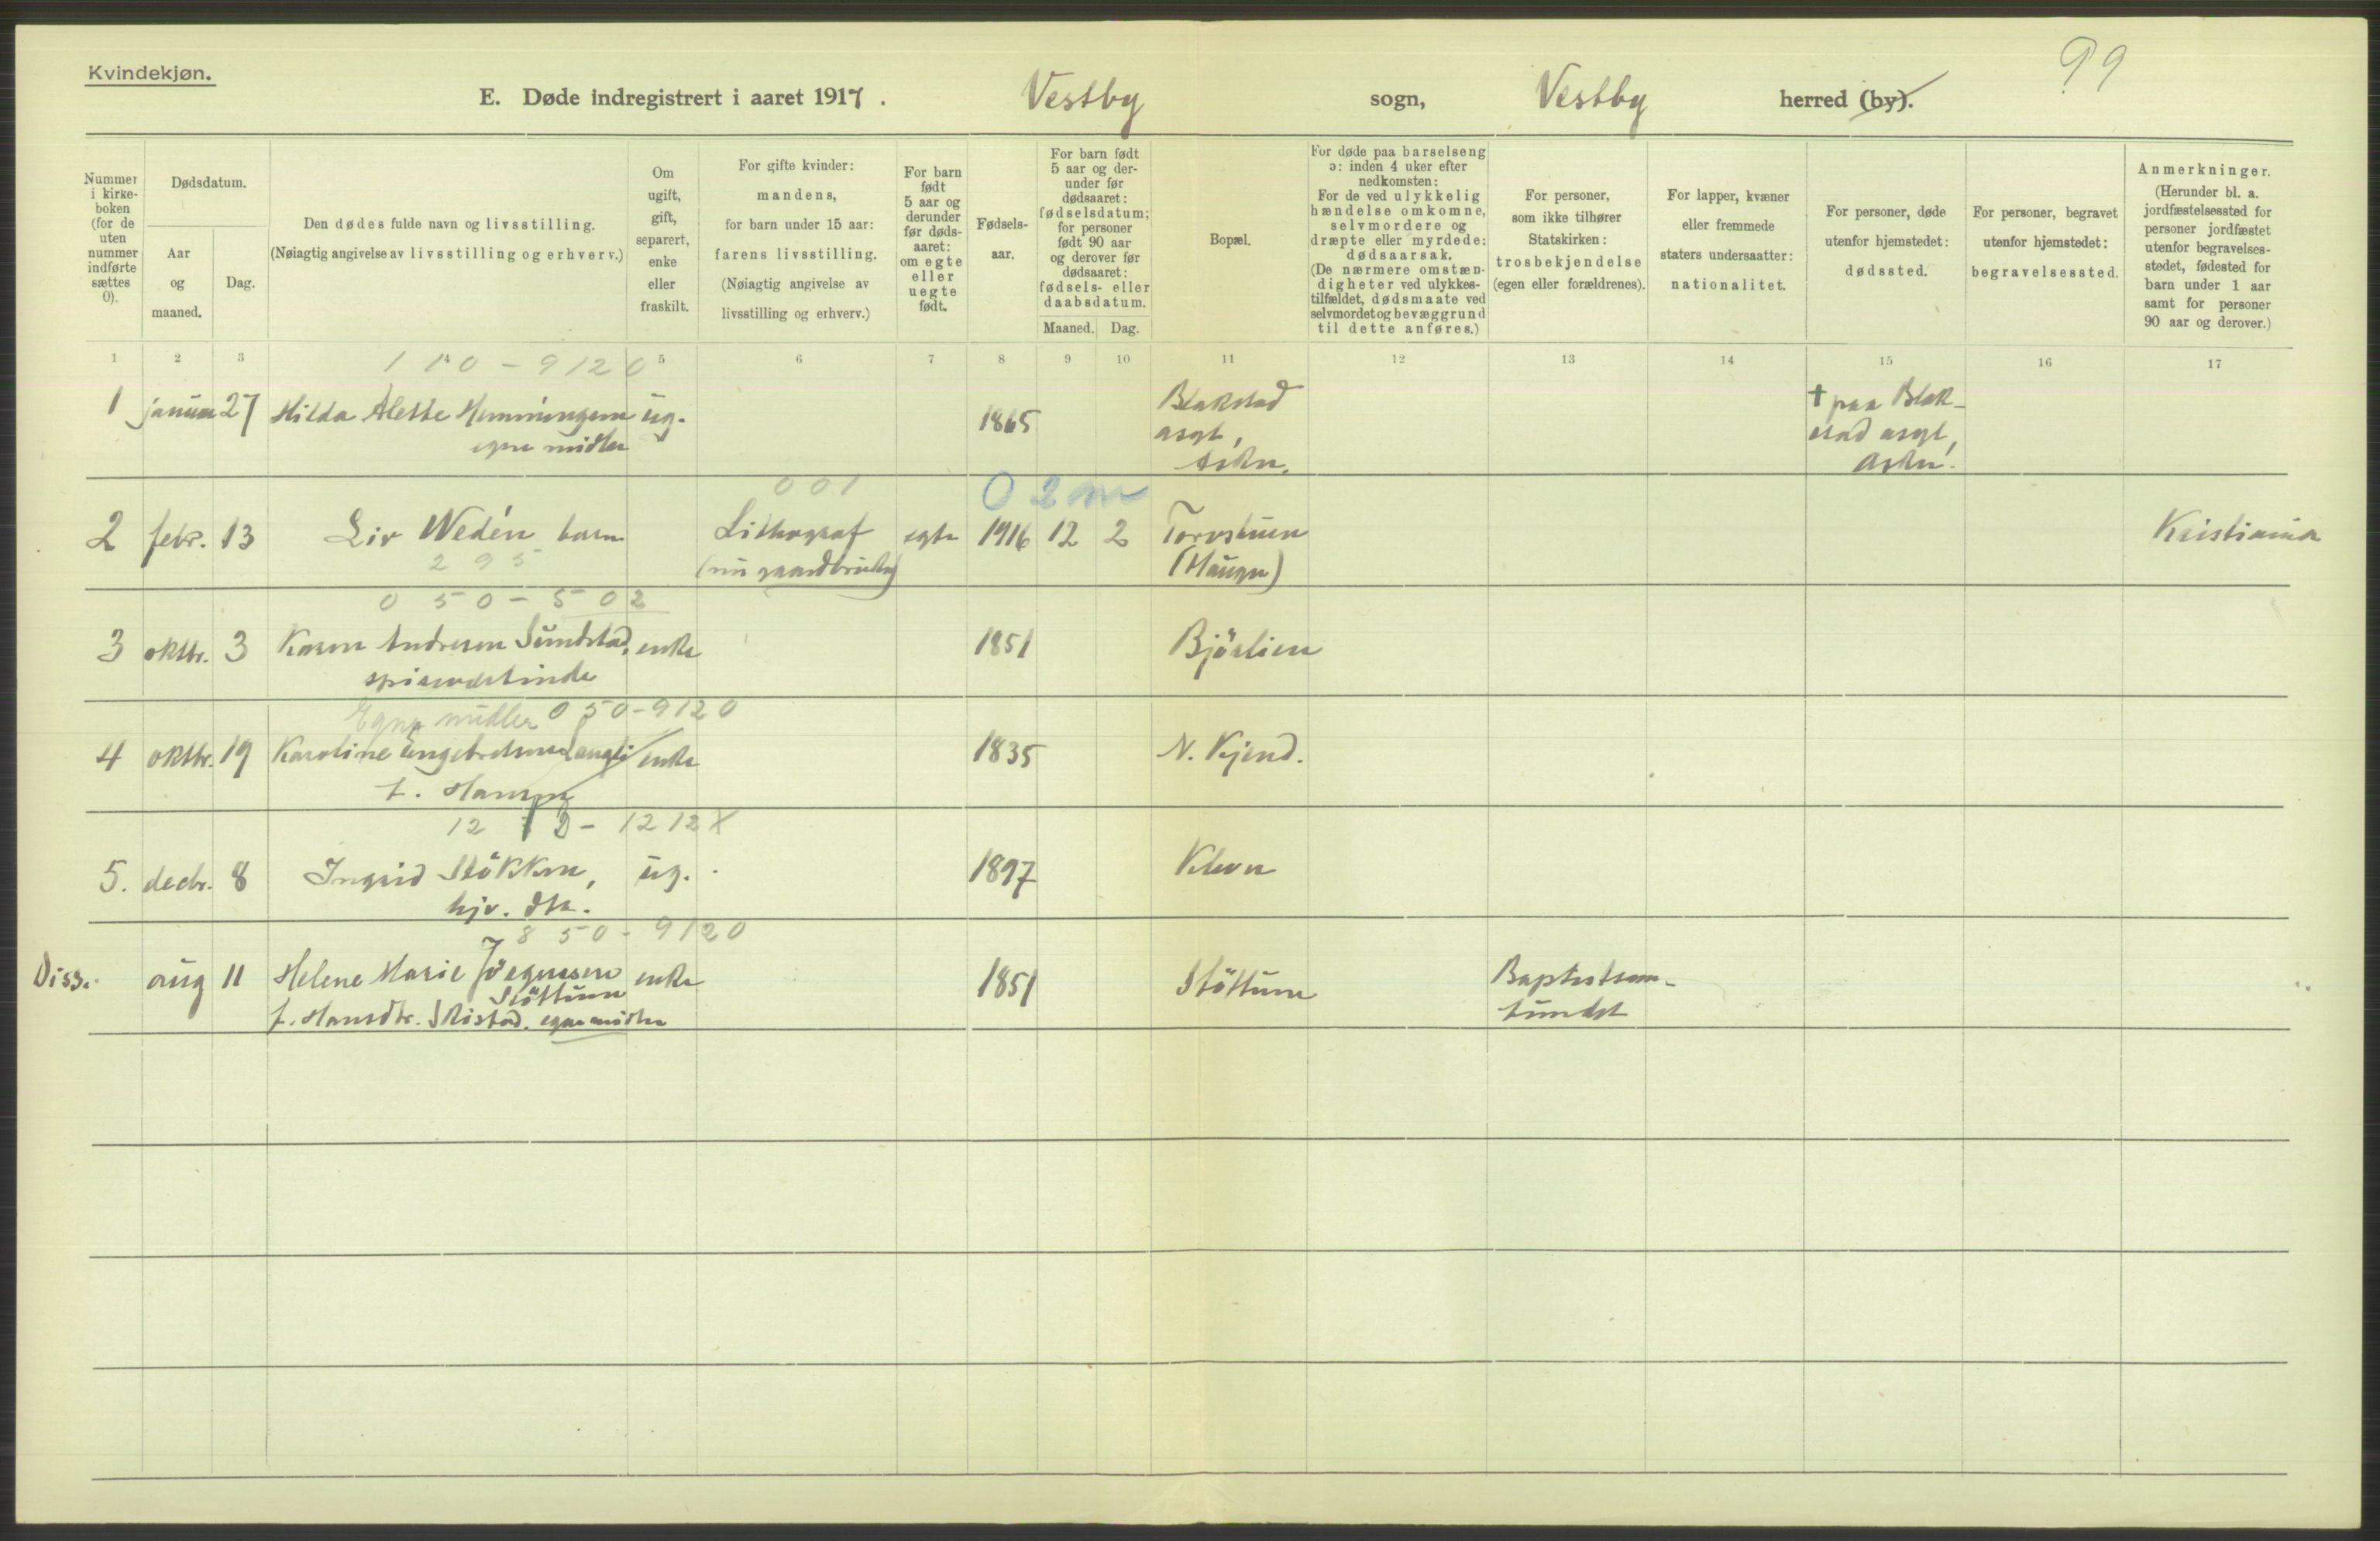 Kvindekjøn.
99
E. Døde indregistrert i aaret 1917. Vestby sogn, Vestby herred (by).
Nummer i kirke-boken (for de uten nummer indførte sættes 0).
Dødsdatum.
Aar og maaned.
Dag.
Den dødes fulde navn og livsstilling.
(Nøiagtig angivelse av livsstilling og erhverv.)
Om ugift, gift, separert, enke eller fraskilt.
For gifte kvinder: mandens, for barn under 15 aar: farens livsstilling. (Nøiagtig angivelse av livsstilling og erhverv.)
For barn født 5 aar og derunder før døds-aaret: om egte eller uegte født.
Fødsels-aar.
For barn født 5 aar og der-under før dødsaaret: fødselsdatum; for personer født 90 aar og derover før dødsaaret: fødsels- eller daabsdatum.
Maaned. Dag.
Bopæl.
For døde paa barselseng ɔ: inden 4 uker efter nedkomsten: For de ved ulykkelig hændelse omkomne, selvmordere og dræpte eller myrdede: dødsaarsak. (De nærmere omstæn-digheter ved ulykkes-tilfældet, dødsmaate ved selvmordet og bevæggrund til dette anføres.)
For personer, som ikke tilhører Statskirken: trosbekjendelse (egen eller forældrenes).
For lapper, kvæner eller fremmede staters undersaatter: nationalitet.
For personer, døde utenfor hjemstedet: dødssted.
For personer, begravet utenfor hjemstedet: begravelsessted.
Anmerkninger. (Herunder bl. a. jordfæstelsessted for personer jordfæstet utenfor begravelses-stedet, fødested for barn under 1 aar samt for personer 90 aar og derover.)
1 2 3 4 5 6 7 8 9 10 11 12 13 14 15 16 17
110-9120
1 januar 27 Hilda Alette Hemmingsen ug. 1865 Blakstad † paa Blak-
egne midler asyl, stad asyl,
Asker. Asker.
001 0 2 m
2 febr. 13 Liv Wedén barn Lithograf egte 1916 12 2 Torvstuen Kristiania
295 (nu gaardbruker) (Haugen)
050-502
3 oktbr. 3 Karen Andresen Sundstad, enke 1851 Björlien
spisevertinde
Egne midler 050-9120
4 oktbr. 19 Karoline Engebretsen Langli enke 1835 N. Kjend.
f. Hansen
5. decbr. 8 Ingrid Stökken, ug. 1897 Kleven
hjv. dtr.
850-9120
Diss. aug 11 Helene Marie Jörgensen enke 1851 Støttum Baptistsam-
Støttum fundet
f. Hansdtr. Skistad. egne midler